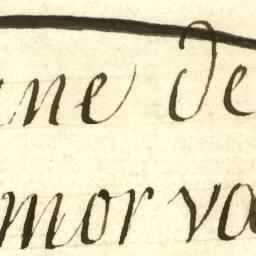 ne de
mor va